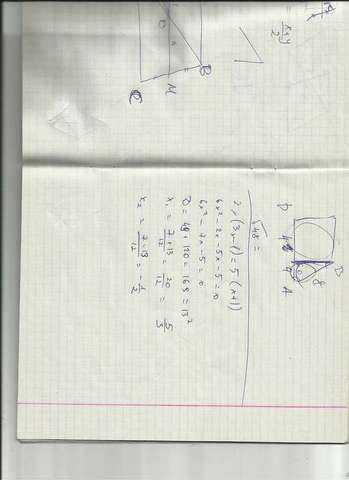 = (x+y)/2
O
C M B
D B
A
√48 =
2x(3x-1) = 5(x+1)
6x² - 2x - 5x - 5 = 0
6x² - 7x - 5 = 0
D = 49 + 120 = 169 = 13²
x₁ = (7+13)/12 = 20/12 = 5/3
x₂ = (7-13)/12 = -1/2